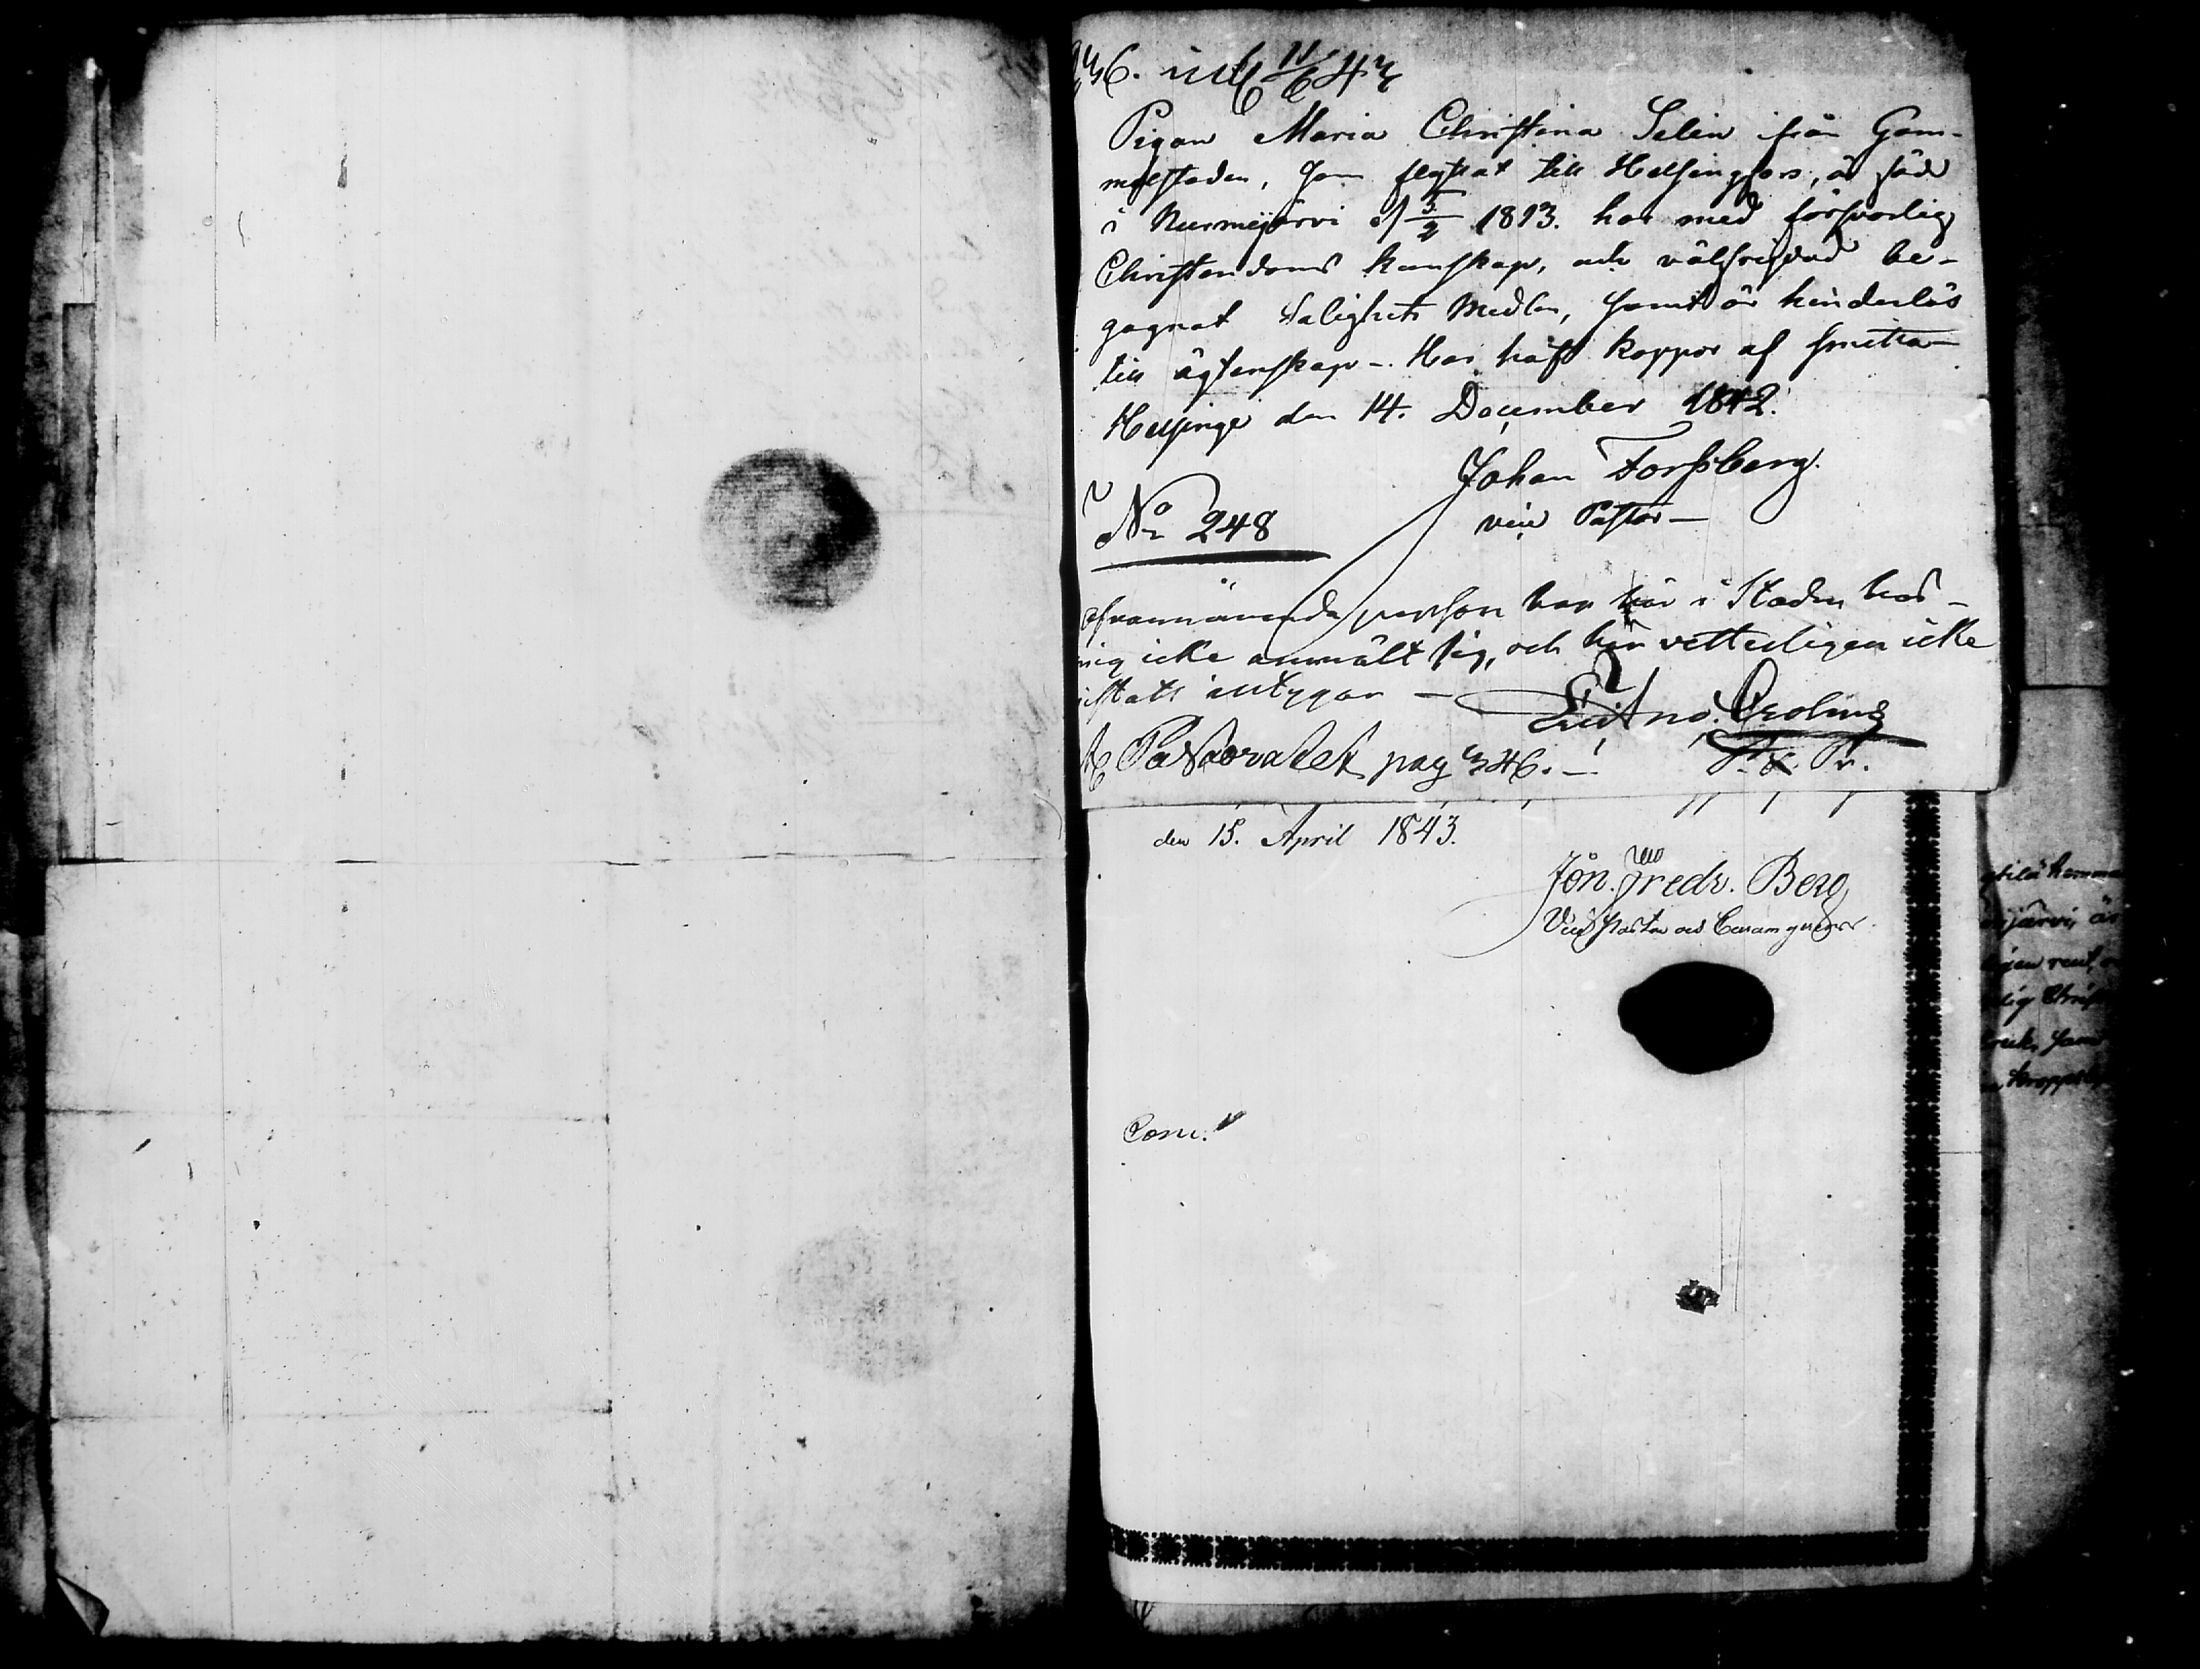 246. utg 11/6 43
Pigan Maria Christina Selin ifrån Gam-
melstaden, som flyttat till Helsingfors, är född
i Nurmijärvi d 5/2 1813. har med försvarlig
Christendoms kunskap, och välfrejdad be-
gagnat Salighets Medlen, samt är hinderlös
till ägtenskap -. Har haft koppor af smitta -
Helsinge den 14. December 1842.
Johan Forssberg.
vice Pastor -
No 248
ofvannämnde person har här i Staden hos -
mig icke anmält sig, och här vetterligen icke
vistats intygar -
Pastoratet pag 346. -
den 15. April 1843.
Joh. Fredr. Berg
Vice Pastor